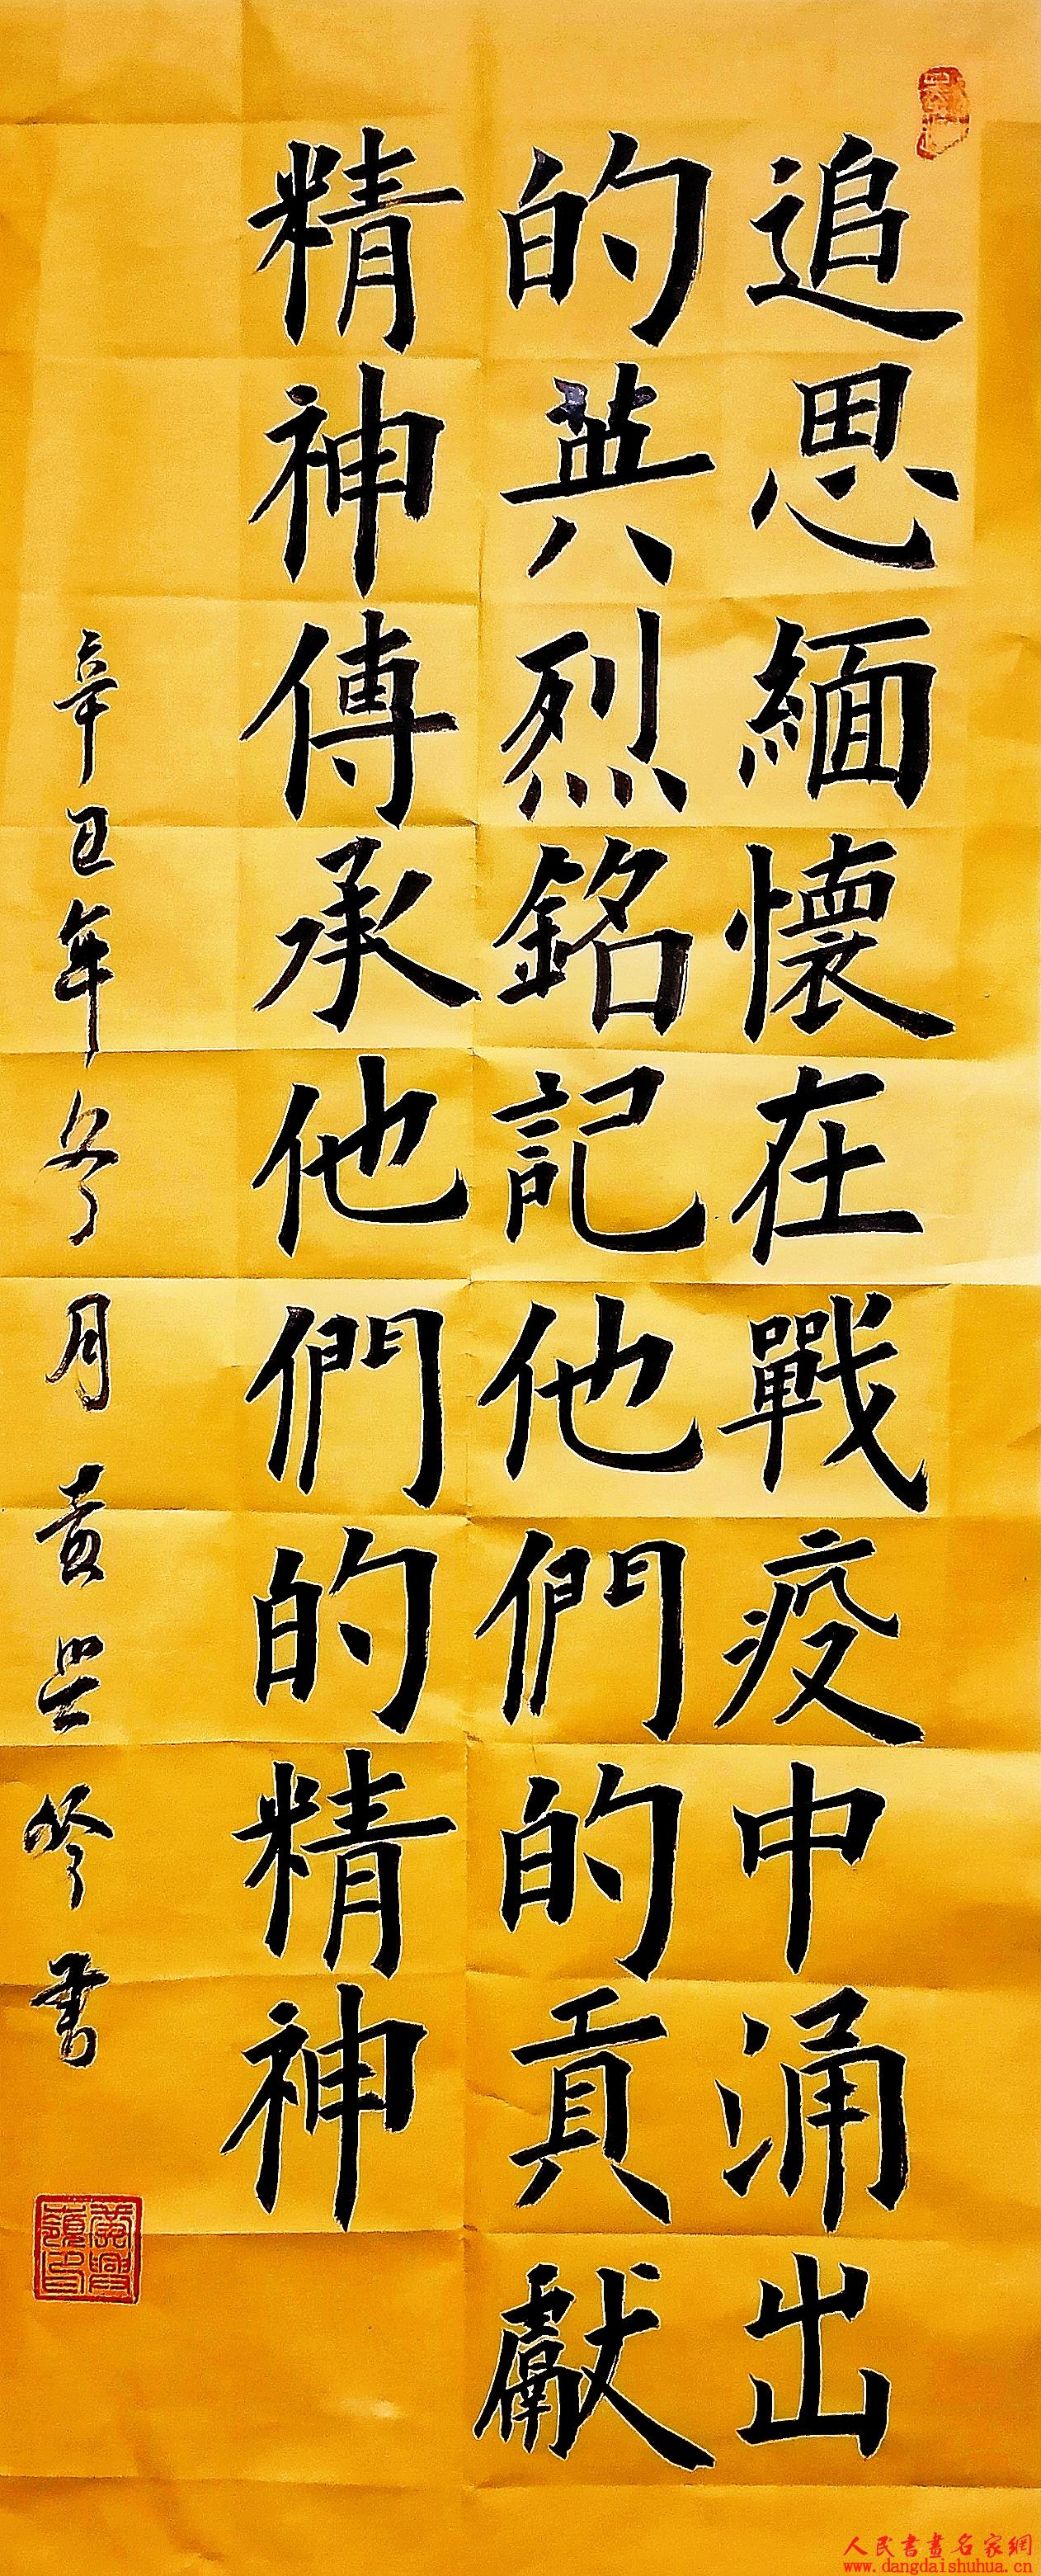 追思緬懷在戰疫中涌出
的英烈銘記他們的貢獻
精神傳承他們的精神
辛丑年冬月黄興岭書
黄興嶺印
人民書畫名家網
www.dangdaishuhua.cn